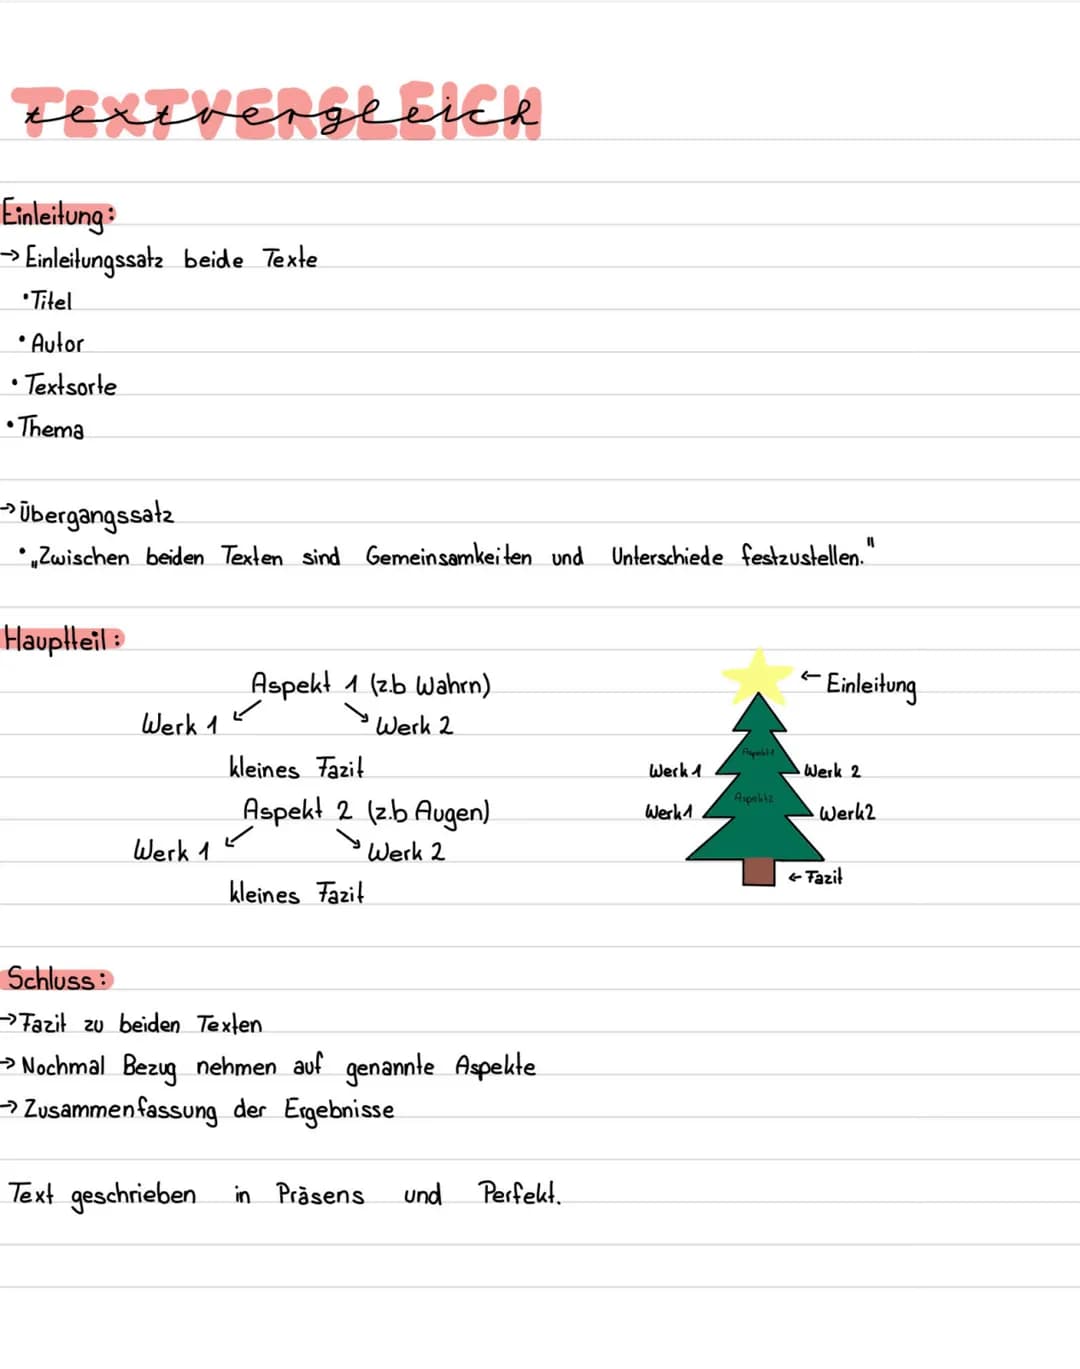 TEXTVERGLEICH
textvergleich
Einleitung:
→ Einleitungssatz beide Texte
• Titel
• Autor
• Textsorte
• Thema
→ Übergangssatz
• „Zwischen beiden Texten sind Gemeinsamkeiten und Unterschiede festzustellen."
Hauptteil:
Aspekt 1 (z.b Wahrn)
Werk 1 Werk 2
kleines Fazit
Aspekt 2 (z.b Augen)
Werk 1 Werk 2
kleines Fazit
← Einleitung
Aspekt 1
Werk 1 Werk 2
Aspekt 2
Werk 1 Werk 2
← Fazit
Schluss:
→ Fazit zu beiden Texten
→ Nochmal Bezug nehmen auf genannte Aspekte
→ Zusammenfassung der Ergebnisse
Text geschrieben in Präsens und Perfekt.